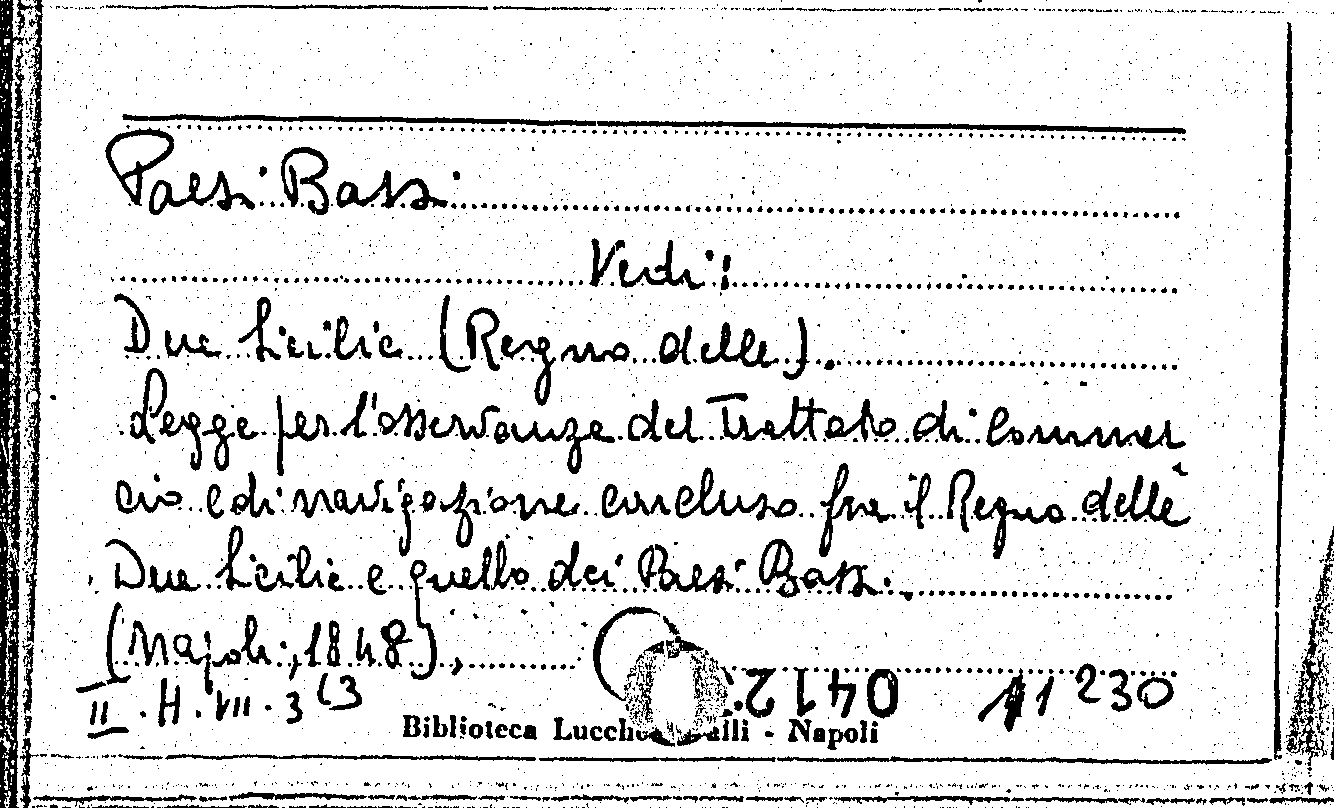 Paesi Bassi
Vedi:
Due Sicilie (Regno delle).
Legge per l'osservanza del Trattato di Commer
cio e di navigazione concluso fra il Regno delle
Due Sicilie e quello dei Paesi Bassi.
(Napoli, 1848),
II. H. VII. 3 (3
0412
11230
Biblioteca - Napoli